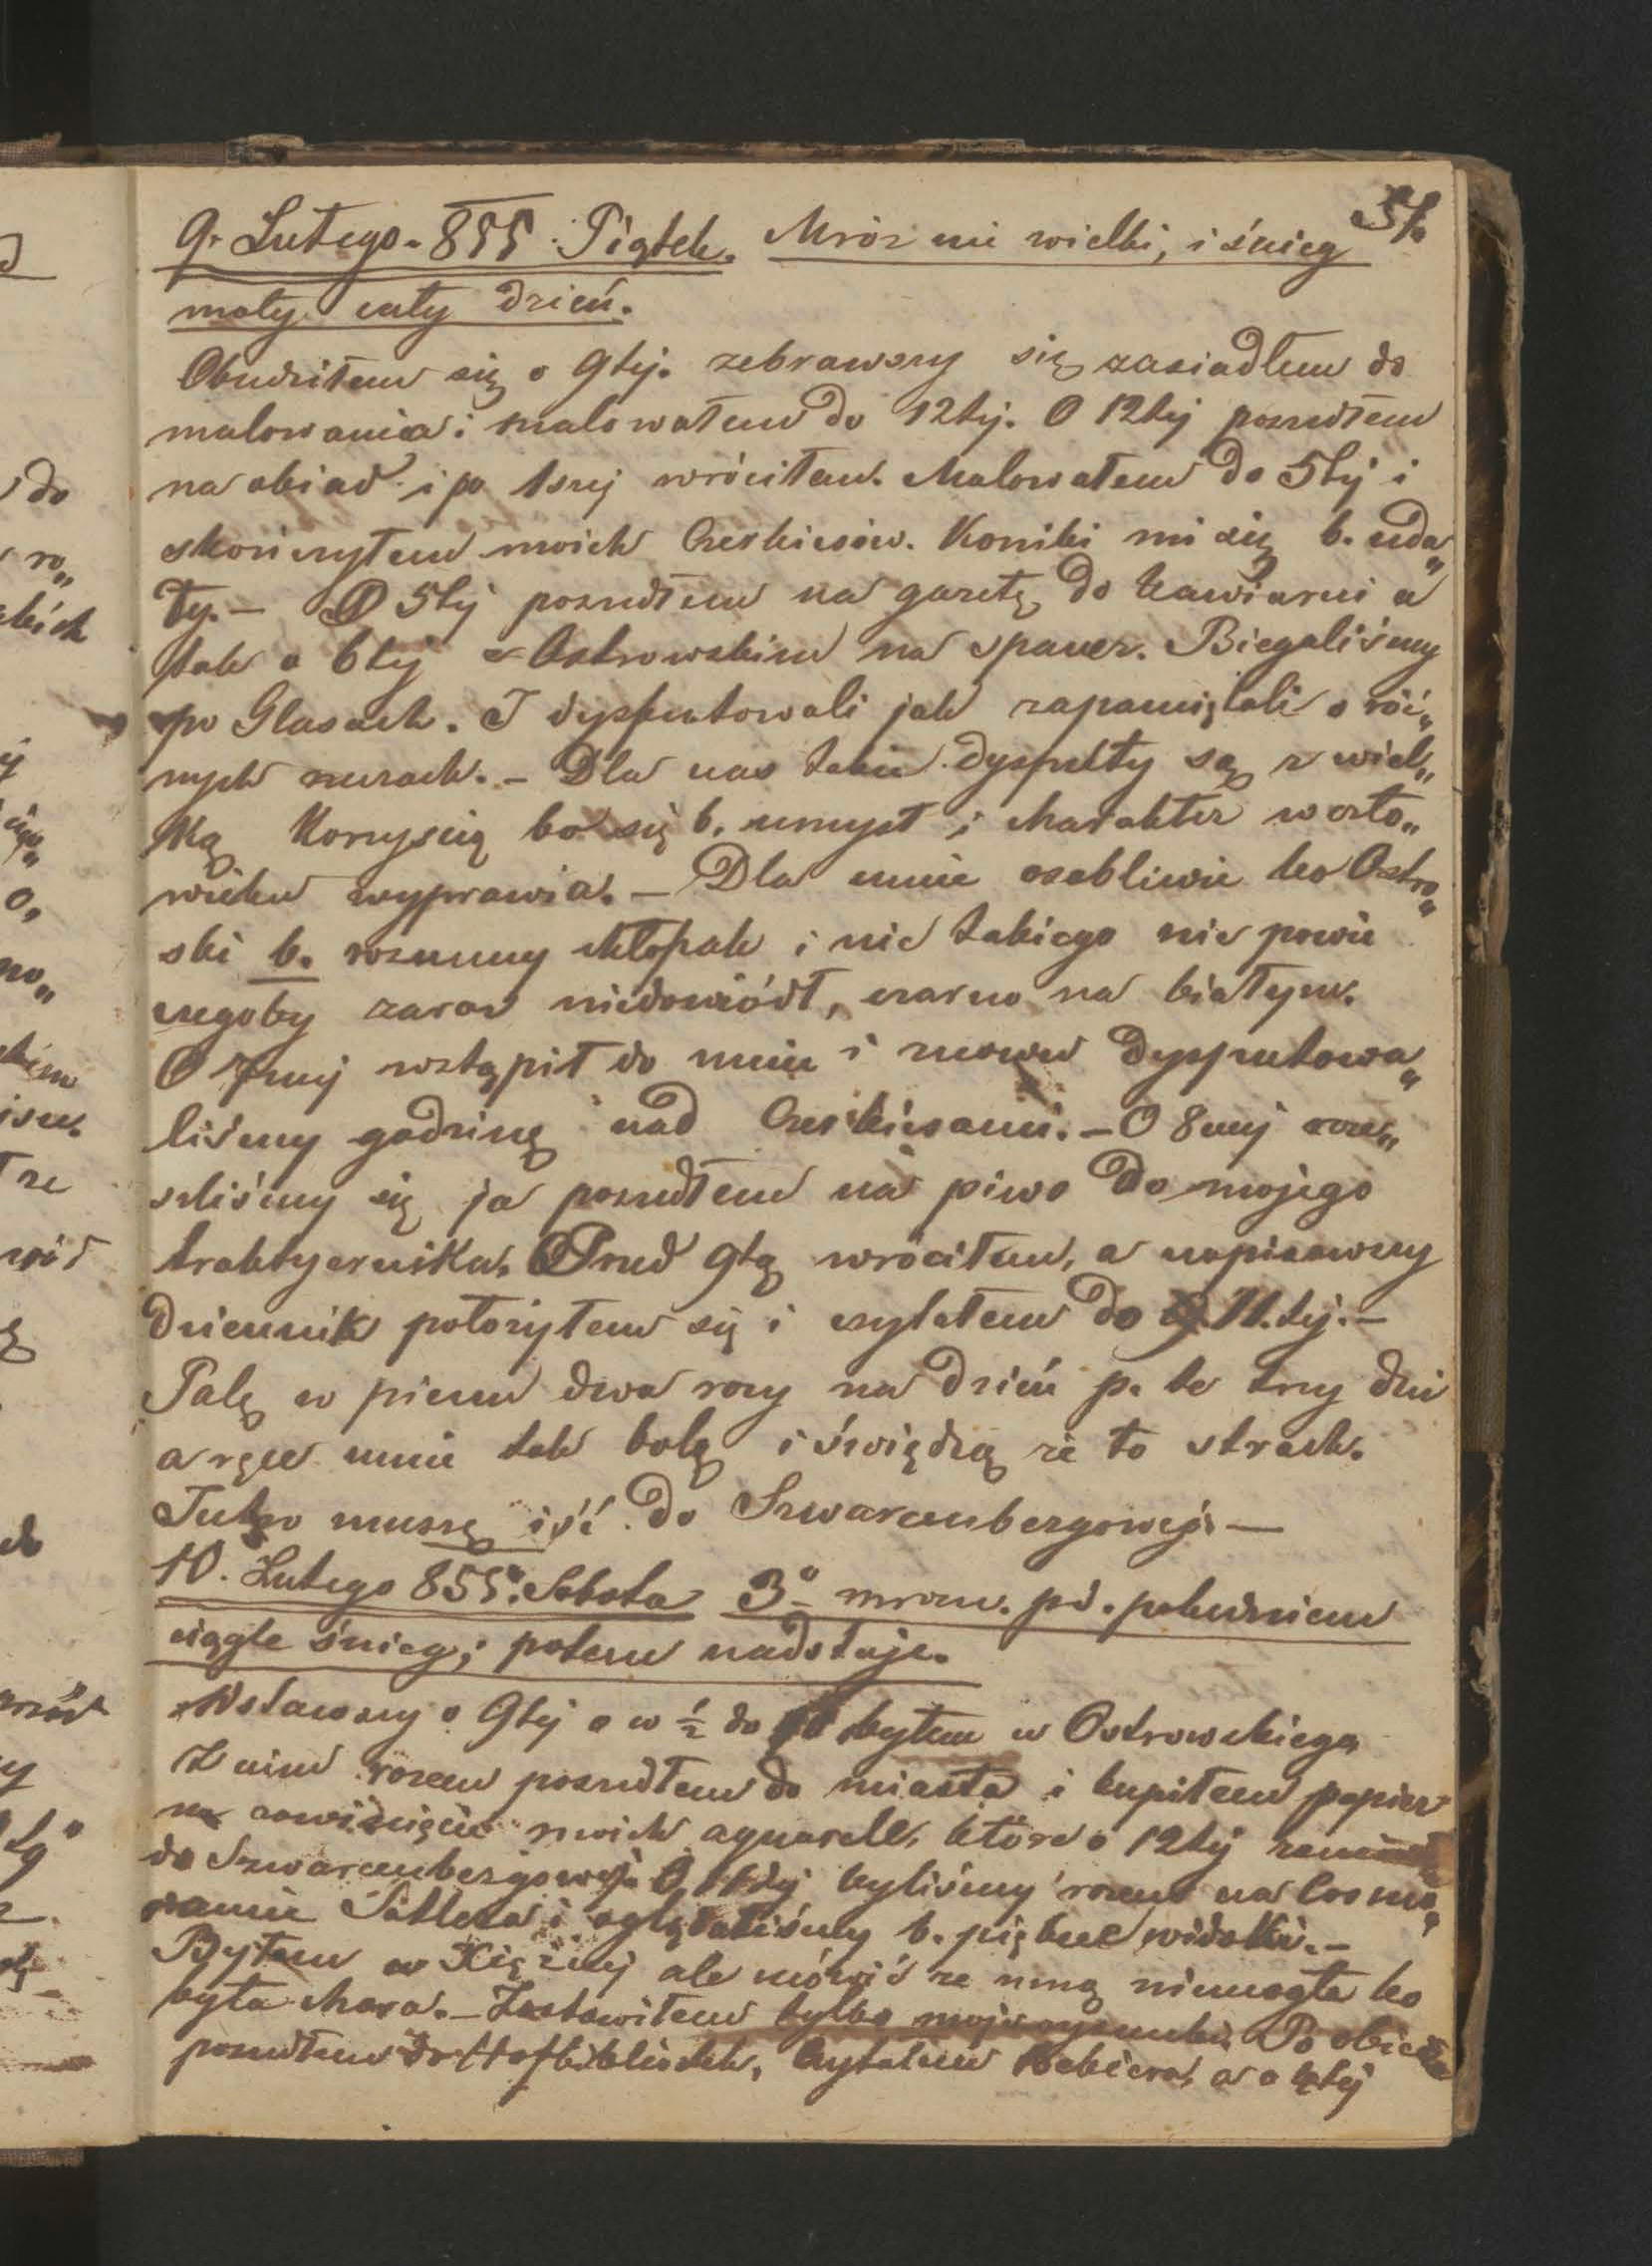 57.
9. Lutego. 855. Piątek. Mróz nie wielki, i śnieg
mały cały dzień.
Obudziłem się o 9tej. zebrawszy się zasiadłem do
malowania i malowałem do 12tej. O 12tej poszedłem
na obiad i po 1szej wróciłem. Malowałem do 5tej i
skończyłem moich Czerkiesów. Koniki mi się b. uda„
ły. — O 5tej poszedłem na gazetę do kawiarni a
tak o 6tej z Ostrowskim na spacer. Biegaliśmy
po Glasach. I dysputowali jak zapamiętali o róż„
nych rzeczach. — Dla nas takie dysputy są z wiel„
ką korzyścią bo się b. umysł i charakter w czło„
wieku wyprawia. — Dla mnie osobliwie bo Ostro„
ski b. rozumny chłopak i nic takiego nie powie
czegoby zaraz niedowiódł, czarno na białym.
O 7mej wstąpił do mnie i znowu dysputowa„
liśmy godzinę nad Czerkiesami. — O 8mej roze„
szliśmy się ja poszedłem na piwo do mojego
traktyernika. Przed 9tą wróciłem, a napisawszy
dziennik położyłem się i czytałem do 11.tej. —
Palę w piecu dwa razy na dzień p. te trzy dni
a ręce mnie tak bolą i świędzą że to strach.
Jutro muszę iść do Szwarcenbergowej. —
10. Lutego 855. Sobota 3° mrozu. pd. południem
ciągle śnieg; potem nadstaje.
Wstawszy o 9tej a w ½ do 10 byłem w Ostrowskiego
Z nim razem poszedłem do miasta i kupiłem papier
na zawinięcie moich aquarell, które o 12tej
do Szwarcenbergowej. O 11tej byliśmy razem na Cosmo„
ramie Sattlera i oglądaliśmy b. piękne widoki. —
Byłem w Księżnej ale mówić ze mną niemogła bo
była chora. — Zostawiłem tylko moje rysunki. Po obiedzie
poszedłem do Hofbibliothek, czytałem Webiera, a o 4tej